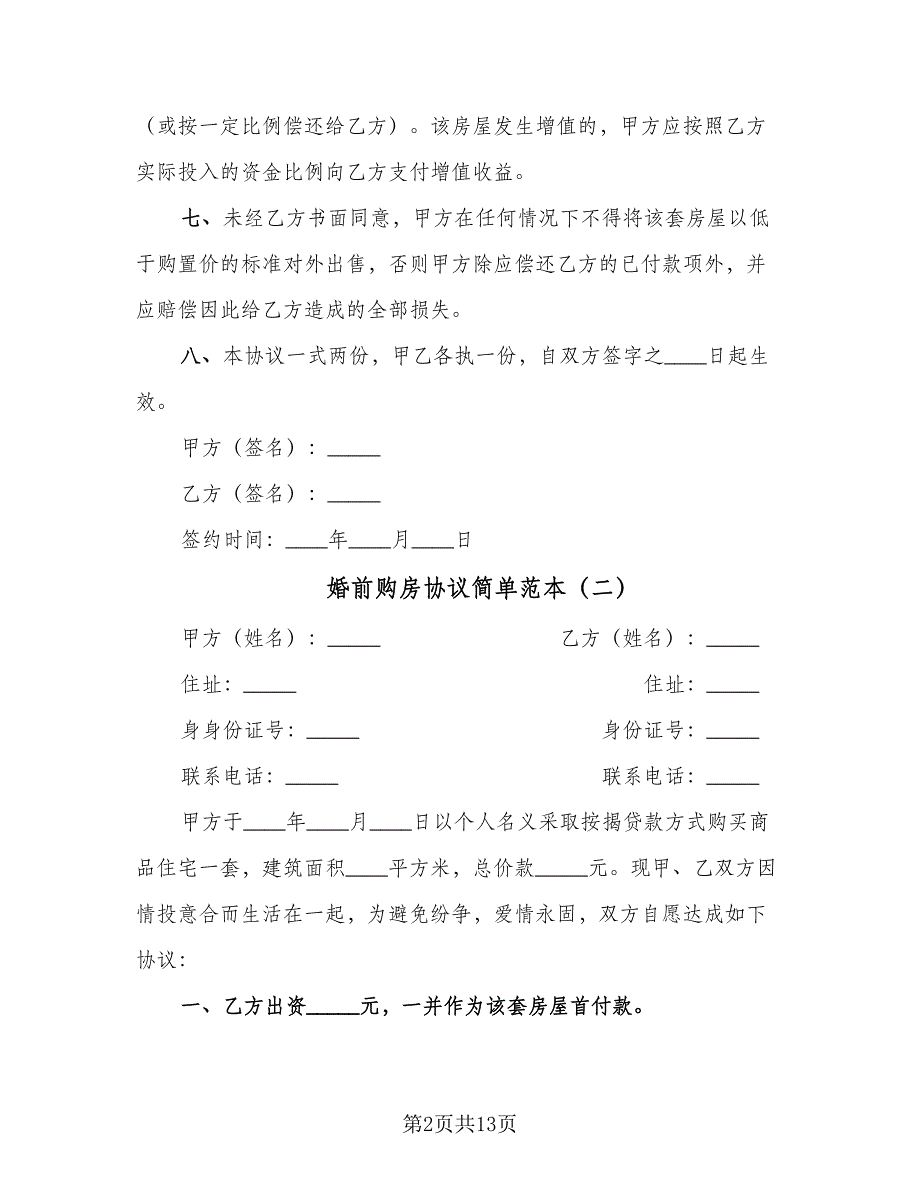 （或按一定比例偿还给乙方）。该房屋发生增值的，甲方应按照乙方
实际投入的资金比例向乙方支付增值收益。
七、未经乙方书面同意，甲方在任何情况下不得将该套房屋以低
于购置价的标准对外出售，否则甲方除应偿还乙方的已付款项外，并
应赔偿因此给乙方造成的全部损失。
八、本协议一式两份，甲乙各执一份，自双方签字之____日起生
效。
甲方（签名）：_____
乙方（签名）：_____
签约时间：____年____月____日
婚前购房协议简单范本（二）
甲方（姓名）：_____ 乙方（姓名）：_____
住址：_____ 住址：_____
身身份证号：_____ 身份证号：_____
联系电话：_____ 联系电话：_____
甲方于____年____月____日以个人名义采取按揭贷款方式购买商
品住宅一套，建筑面积____平方米，总价款_____元。现甲、乙双方因
情投意合而生活在一起，为避免纷争，爱情永固，双方自愿达成如下
协议：
一、乙方出资_____元，一并作为该套房屋首付款。
第2页共13页